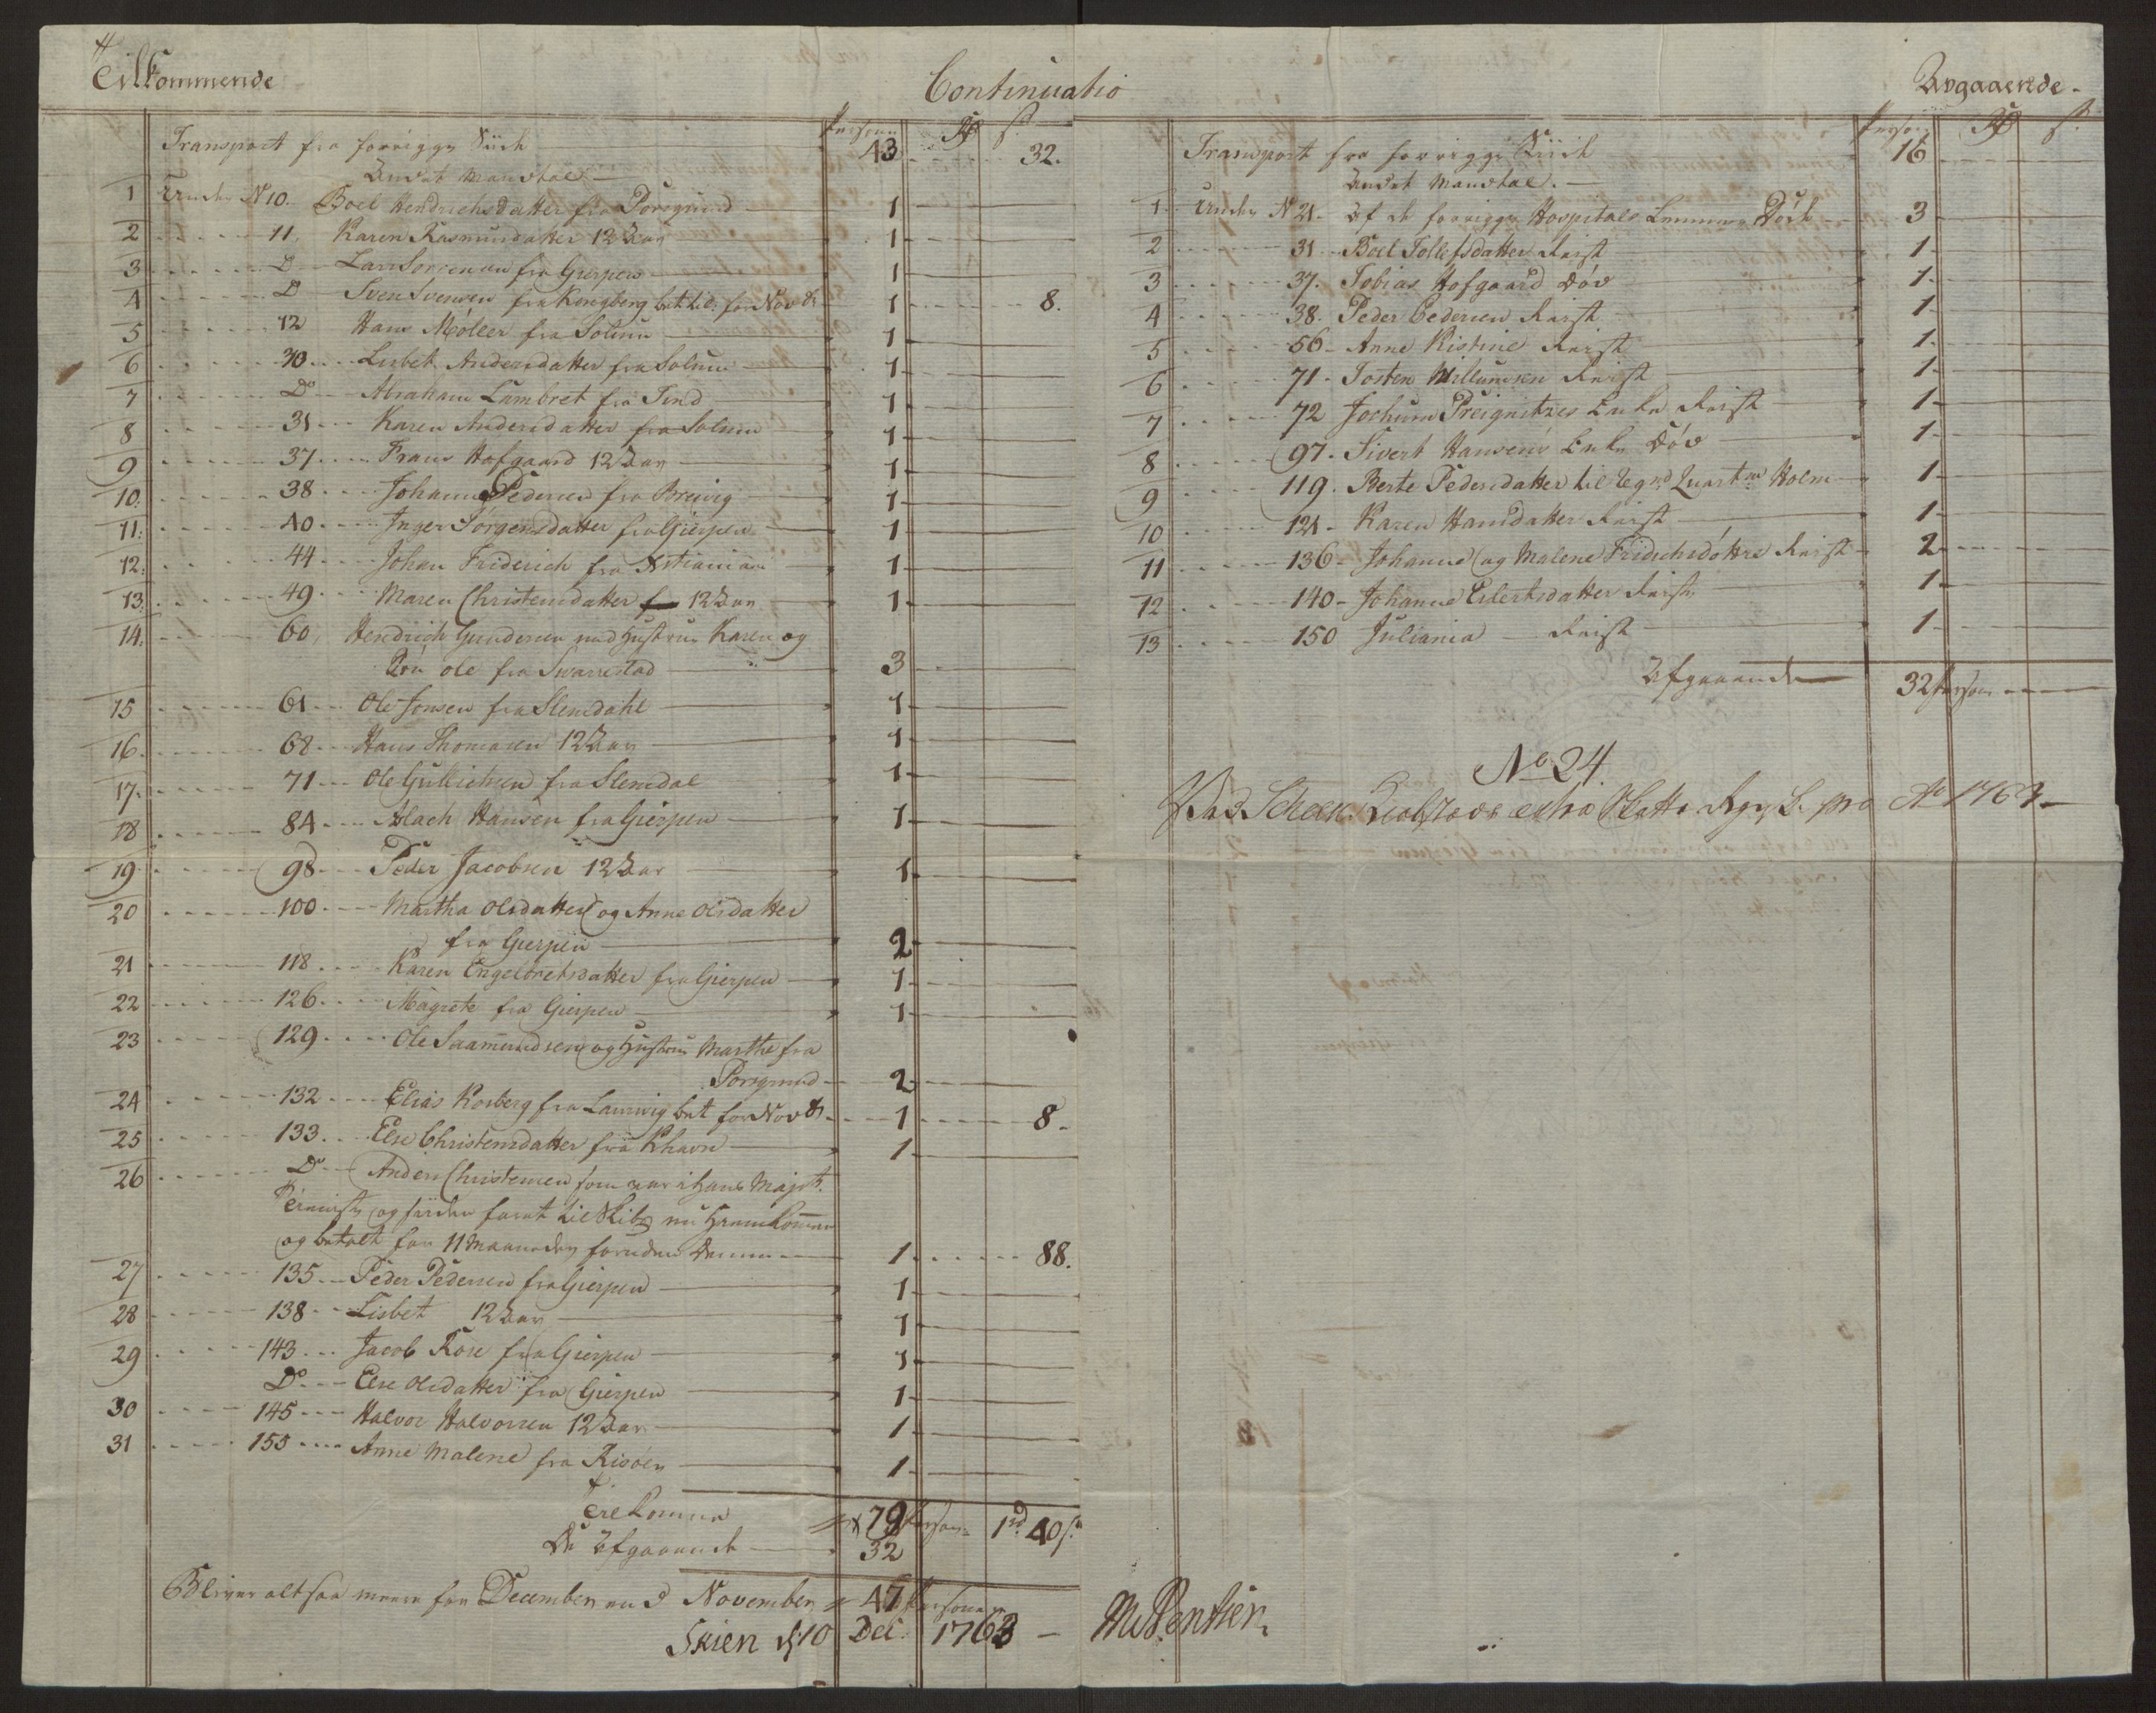 Tilkommende
Continuatio
Person Rd s.
Transport fra forrige Siide 43 32.
Andet Mandtal
1 Under N 10. Boel Hendrichsdatter fra Porsgrund 1
2 11. Karen Rasmusdatter 12 Aar 1
3 D Lars Sørensen fra Gierpen 1
4 D Sven Svensen fra Kongberg bet. til. for Novbr 1 8.
5 12 Hans Møller fra Solum 1
6 30 Lisbet Andersdatter fra Solum 1
7 Do Abraham Lambret fra Tind 1
8 31 Karen Andersdatter fra Solum 1
9 37 Frans Hofgaard 12 Aar 1
10. 38 Johanne Pedersen fra Brevig 1
11: 40 Inger Jørgensdatter fra Gierpen 1
12: 44 Johan Friderich fra Xstiania 1
13: 49 Maren Christensdatter 12 Aar 1
14: 60, Hendrich Gundersen med Hustrue Karen og
Søn Ole fra Swarrestad 3
15 61 Ole Jonsen fra Slemdahl 1
16. 68 Hans Thomasen 12 Aar 1
17. 71 Ole Gullichsen fra Slemdal 1
18 84 Aslach Hansen fra Gierpen 1
19 98 Peder Jacobsen 12 Aar 1
20 100 Martha Olsdatter og Anne Olsdatter
fra Gierpen 2
21 118 Karen Engelbretsdatter fra Gierpen 1
22 126 Magrete fra Gierpen 1
23 129 Ole Saamundsen og Hustrue Marthe fra
Porsgrund 2
24 132 Elias Rosberg fra Laurvig bet for Novbr. 1 8.
25 133 Else Christensdatter fra Khavn 1
26 Do Anders Christensen som var i Hans Majst.
Tieniste og siden faret til Skibs nu Hiemkommen
og betalt for 11 Maaneder foruden Denne 1 88.
27 135 Peder Pedersen fra Gierpen 1
28 138 Lisbet 12 Aar 1
29 143 Jacob Rose fra Gierpen 1
Do Else Olsdatter fra Gierpen 1
30 145 Halvor Halvorsen 12 Aar 1
31 155 Anne Malene fra Risøer 1
Tilkomne 79 Person 1rd 40s.
De Afgaaende 32
Bliver altsaa meere for December end November 47 Personer
Skien d. 10 Dec. 1763
Avgaaende
Person Rd s.
Transport fra forrige Siide 16
Andet Mandtal.
1 Under N 21. Af de forrige Hospitals Lemmer Døde 3
2 31 Boel Tollefsdatter Reist 1
3 37. Tobias Hofgaard Død 1
4 38. Peder Pedersen Reist 1
5 56 Anne Kistine Reist 1
6 71 Torsten Willumsen Reist 1
7 72 Jochum Preignitzes Enke Reist 1
8 97. Sivert Hansens Enke Død 1
9 119. Berte Pedersdatter til Holm 1
10 124 Karen Hansdatter Reist 1
11 136 Johanne og Malene Fridrichsdøttre Reist 2
12 140 Johanne Eilertsdatter Reist 1
13 150 Juliania Reist 1
Afgaaende 32 Person
No 24.
Kiøbstæds extra Skatte Rgsk. pro Ao 1763